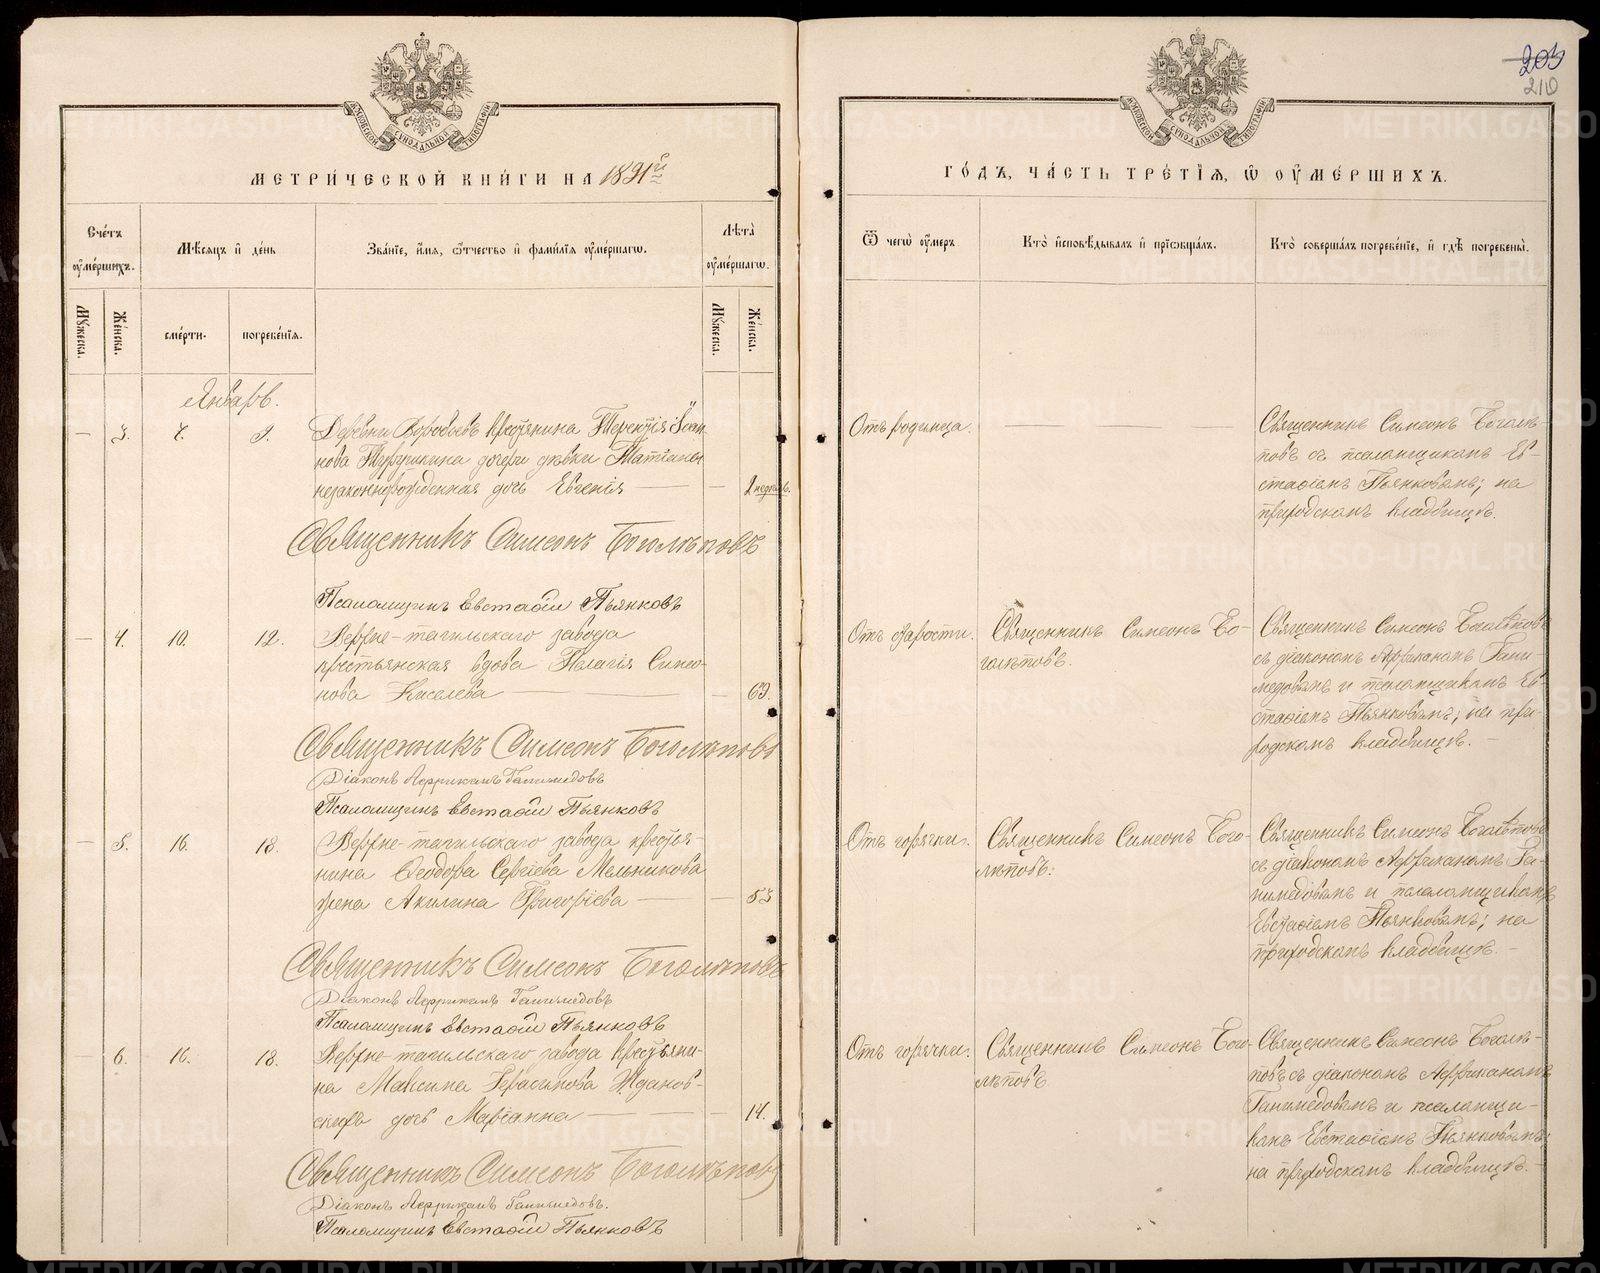 203
210
МОСКОВСКОЙ СѴНОДАЛЬНОЙ ТИПОГРАФІИ
МОСКОВСКОЙ СѴНОДАЛЬНОЙ ТИПОГРАФІИ
МЕТРИ́ЧЕСКОЙ КНИ́ГИ НА 1891й
ГО́ДЪ, ЧА́СТЬ ТРЕ́ТІѦ, Ѿ ОУМЕ́РШИХЪ.
Сче́тъ оуме́ршихъ.
Мѣ́сяцъ и де́нь
Зва́нїе, и́мѧ, ѻ́тчество и фами́лїѧ оуме́ршагѡ.
Лѣ́та оуме́ршагѡ.
Ѿ чегѡ̀ оу́меръ
Кто̀ исповѣ́дывалъ и прїѡбща́лъ.
Кто̀ соверша́лъ погребе́нїе, и гдѣ̀ погребены̀.
Му́жеска.
Же́нска.
сме́рти.
погребе́нїѧ.
Му́жеска.
Же́нска.
Январь.
— 3. 7. 9. Деревни Воробьевъ крестьянина Терентія Іоан-
нова дочери дѣвки Татіаны
незаконнорожденная дочь Евгенія — — 2 недѣль.
Отъ родимца. —
Священникъ Симеонъ Боголѣ-
повъ съ псаломщикомъ Ев-
стафіемъ Пьянковымъ; на
приходскомъ кладбищѣ.
Священникъ Симеонъ Боголѣповъ
Псаломщикъ Евстафій Пьянковъ
— 4. 10. 12. Верхне-тагильскаго завода
крестьянская вдова Пелагія Симео-
нова Киселева — — 69.
Отъ старости.
Священникъ Симеонъ Бо-
голѣповъ.
Священникъ Симеонъ Боголѣповъ
съ діакономъ Африканомъ Гани-
медовымъ и псаломщикомъ Ев-
стафіемъ Пьянковымъ; на при-
ходскомъ кладбищѣ. —
Священникъ Симеонъ Боголѣповъ
Діаконъ Африканъ Ганимедовъ
Псаломщикъ Евстафій Пьянковъ
— 5. 16. 18. Верхне-тагильскаго завода крестья-
нина Ѳеодора Сергіева Мельникова
жена Акилина Григоріева — — 53
Отъ горячки.
Священникъ Симеонъ Бого-
лѣповъ.
Священникъ Симеонъ Боголѣповъ
съ діакономъ Африканомъ Га-
нимедовымъ и псаломщикомъ
Евстафіемъ Пьянковымъ; на
приходскомъ кладбищѣ. —
Священникъ Симеонъ Боголѣповъ
Діаконъ Африканъ Ганимедовъ
Псаломщикъ Евстафій Пьянковъ
— 6. 16. 18. Верхне-тагильскаго завода крестьяни-
на Максима Герасимова Жданов-
скихъ дочь Маріанна — — 14.
Отъ горячки.
Священникъ Симеонъ Бого-
лѣповъ
Священникъ Симеонъ Боголѣ-
повъ съ діакономъ Африканомъ
Ганимедовымъ и псаломщи-
комъ Евстафіемъ Пьянковымъ;
на приходскомъ кладбищѣ. —
Священникъ Симеонъ Боголѣповъ
Діаконъ Африканъ Ганимедовъ.
Псаломщикъ Евстафій Пьянковъ
METRIKI.GASO-URAL.RU